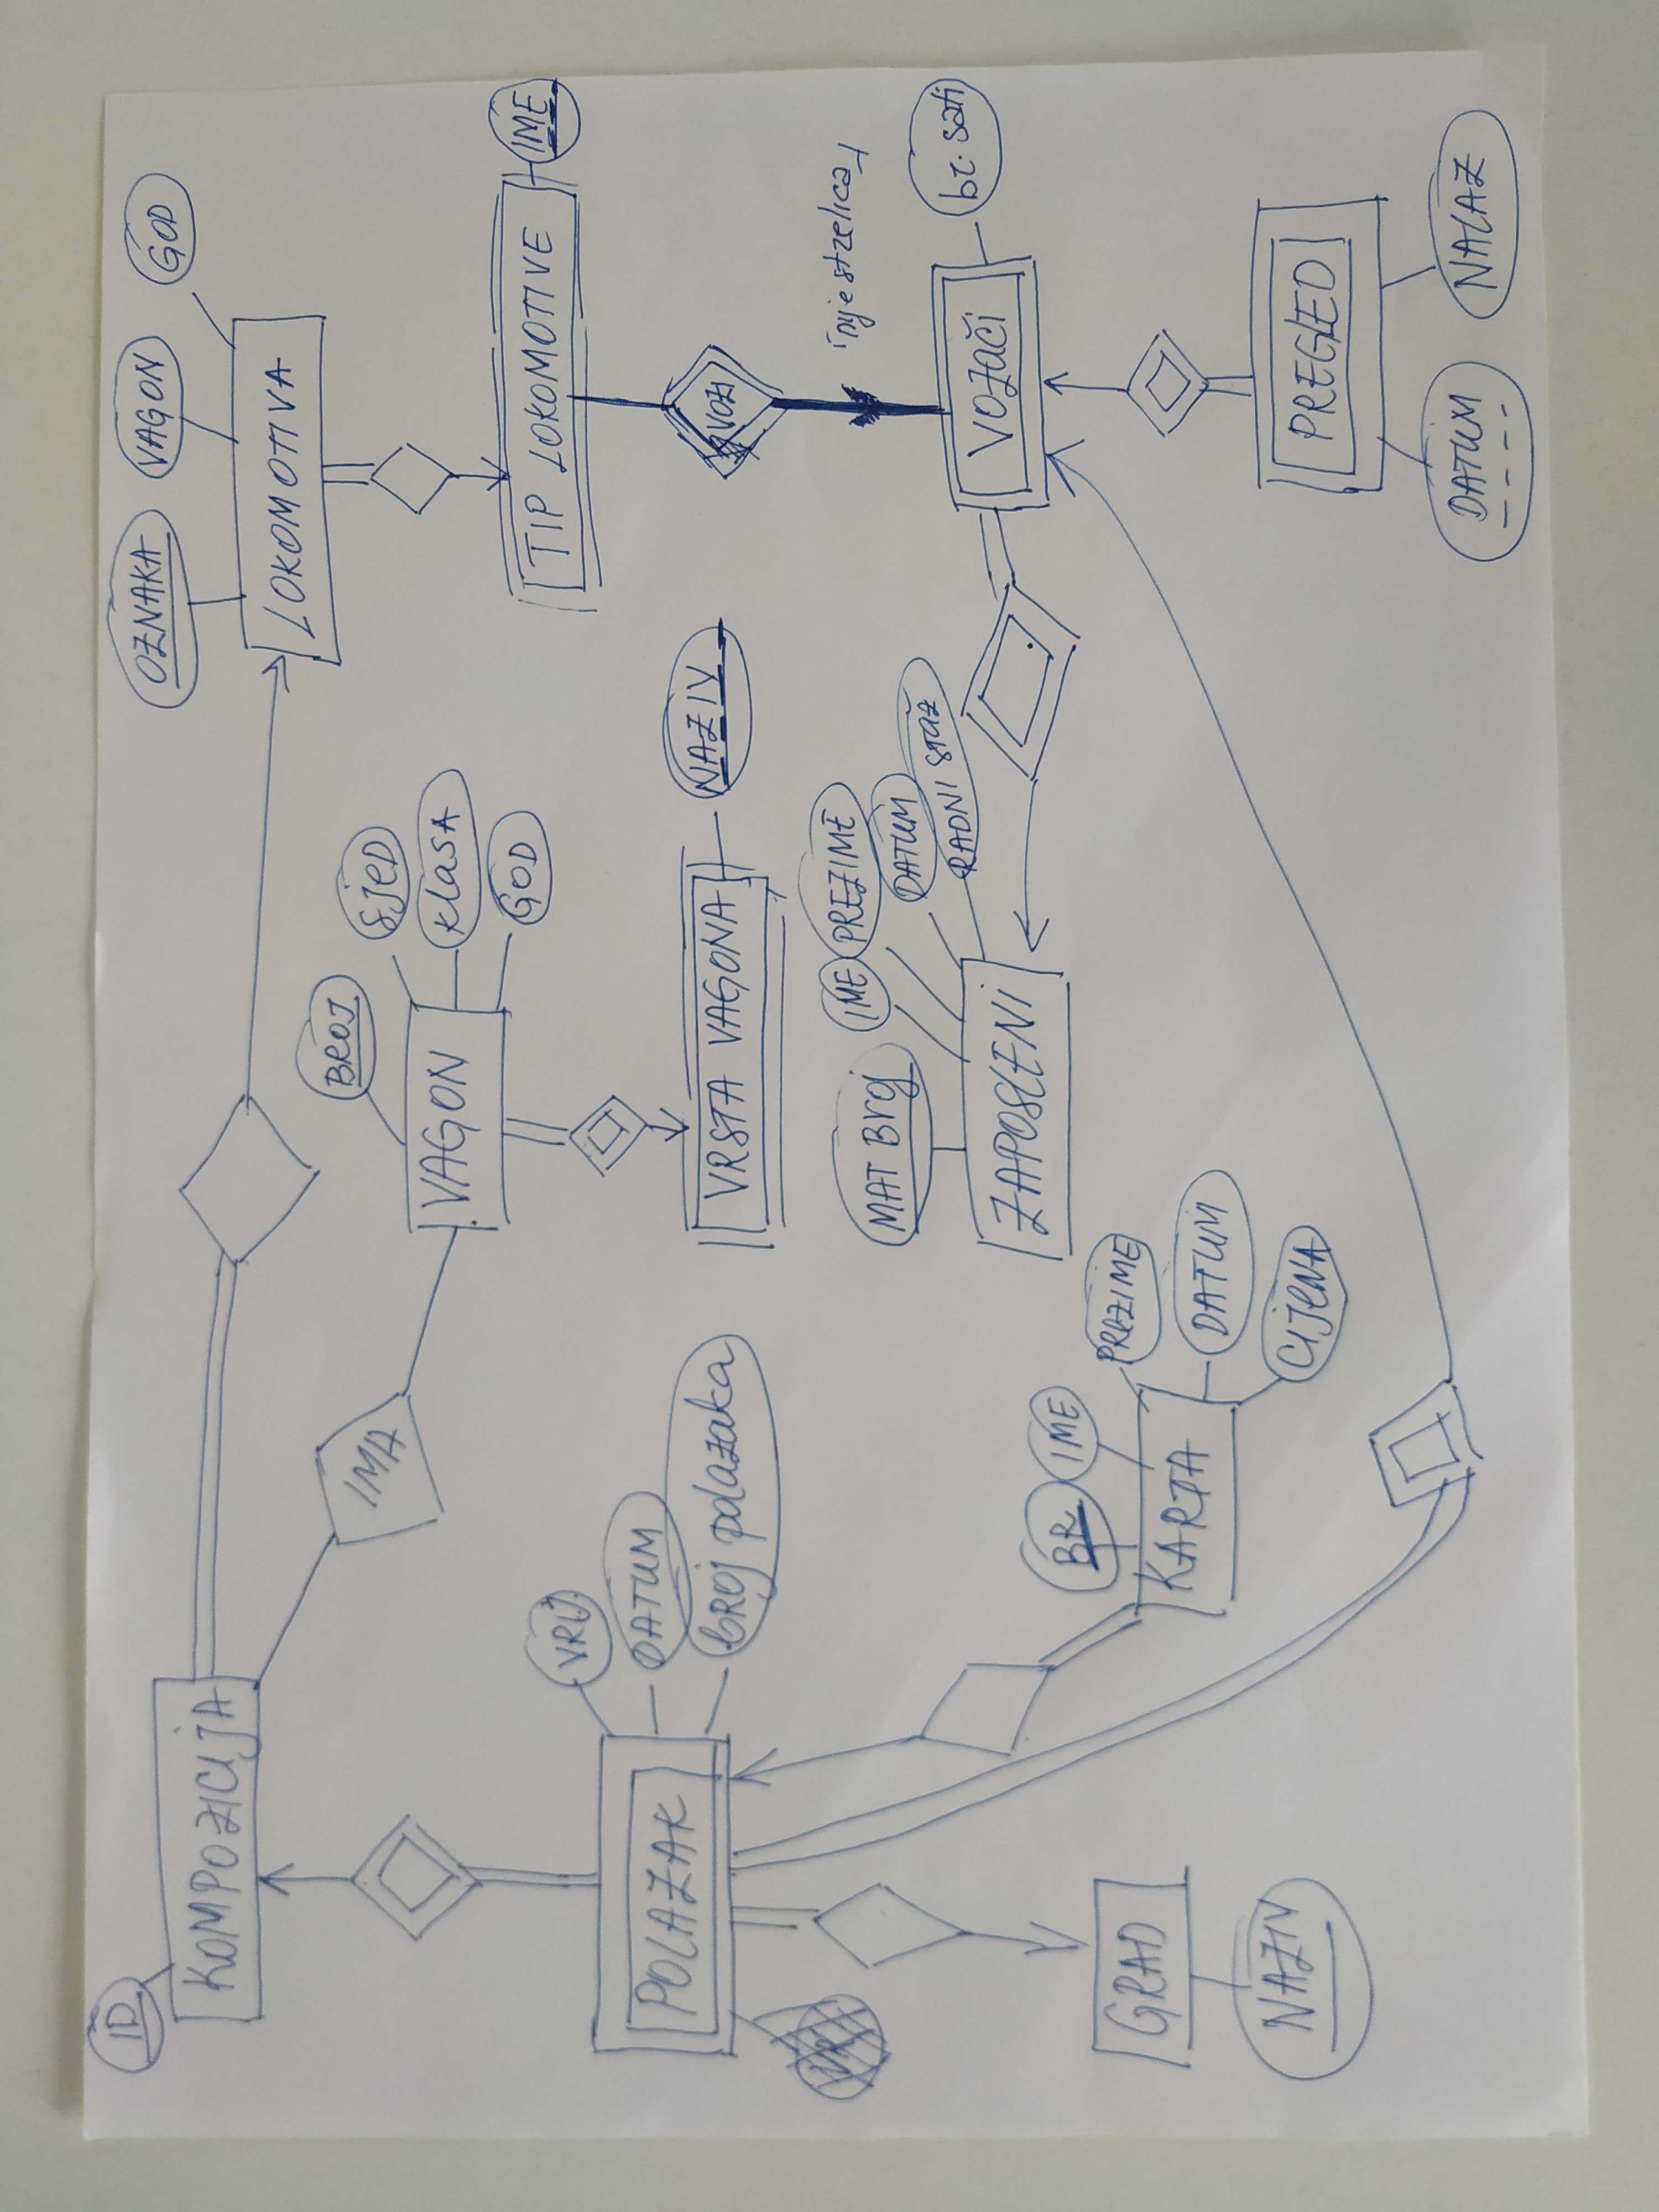 ID
KOMPOZICIJA
OZNAKA
VAGON
GOD
LOKOMOTIVA
IMA
BROJ
SJED
KlASA
GOD
VAGON
TIP LOKOMOTIVE
IME
VRIJ.
DATUM
BROJ polazaka
POLAZAK
VRSTA VAGONA
NAZIV
VOZI
nije strelica
MAT Broj
IME
PREZIME
DATUM
RADNI STAŽ
ZAPOSLENI
VOZAči
br. sati
BR
IME
PREZIME
DATUM
CIJENA
KARTA
GRAD
NAZIV
PREGLED
DATUM
NALAZ